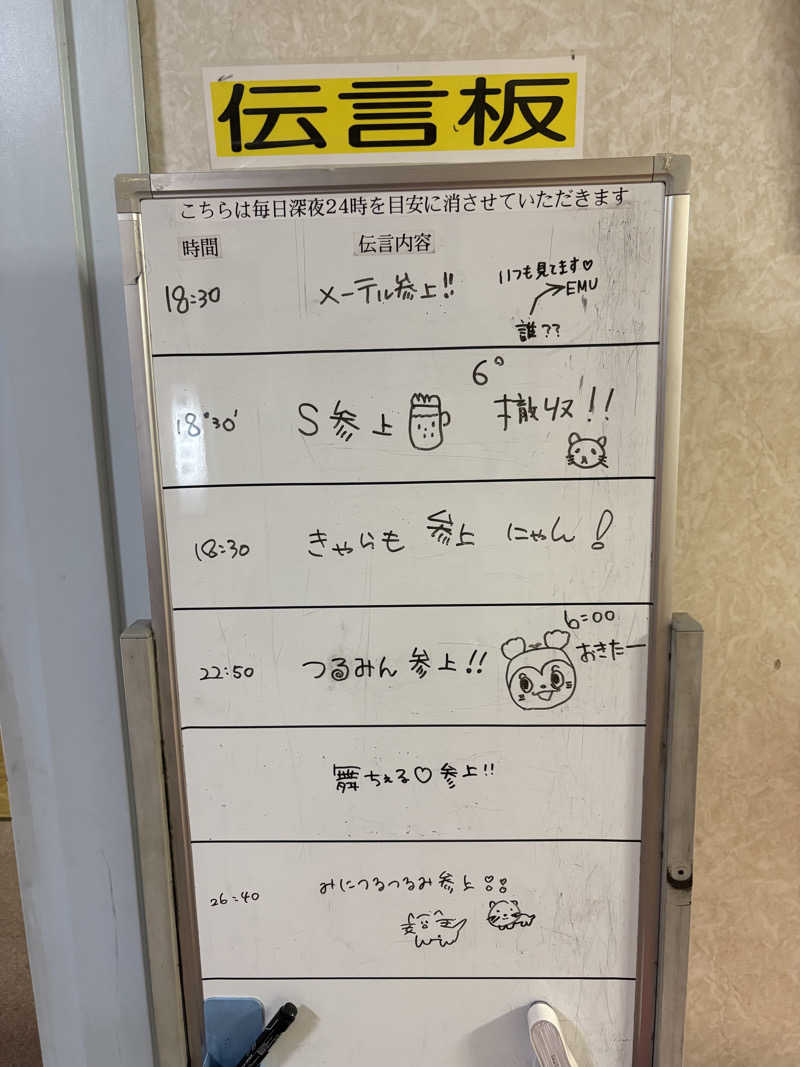 伝言板
こちらは毎日深夜24時を目安に消させていただきます
時間 伝言内容
いつも見てます♡
18:30 メーテル参上!! EMU
誰??
6°
18°30' S参上 撤収!!
18:30 きゃらも 参上 にゃん!
6:00
22:50 つるみん 参上!! おきたー
舞ちぇる♡参上!!
26:40 みにつるつるみ参上!!